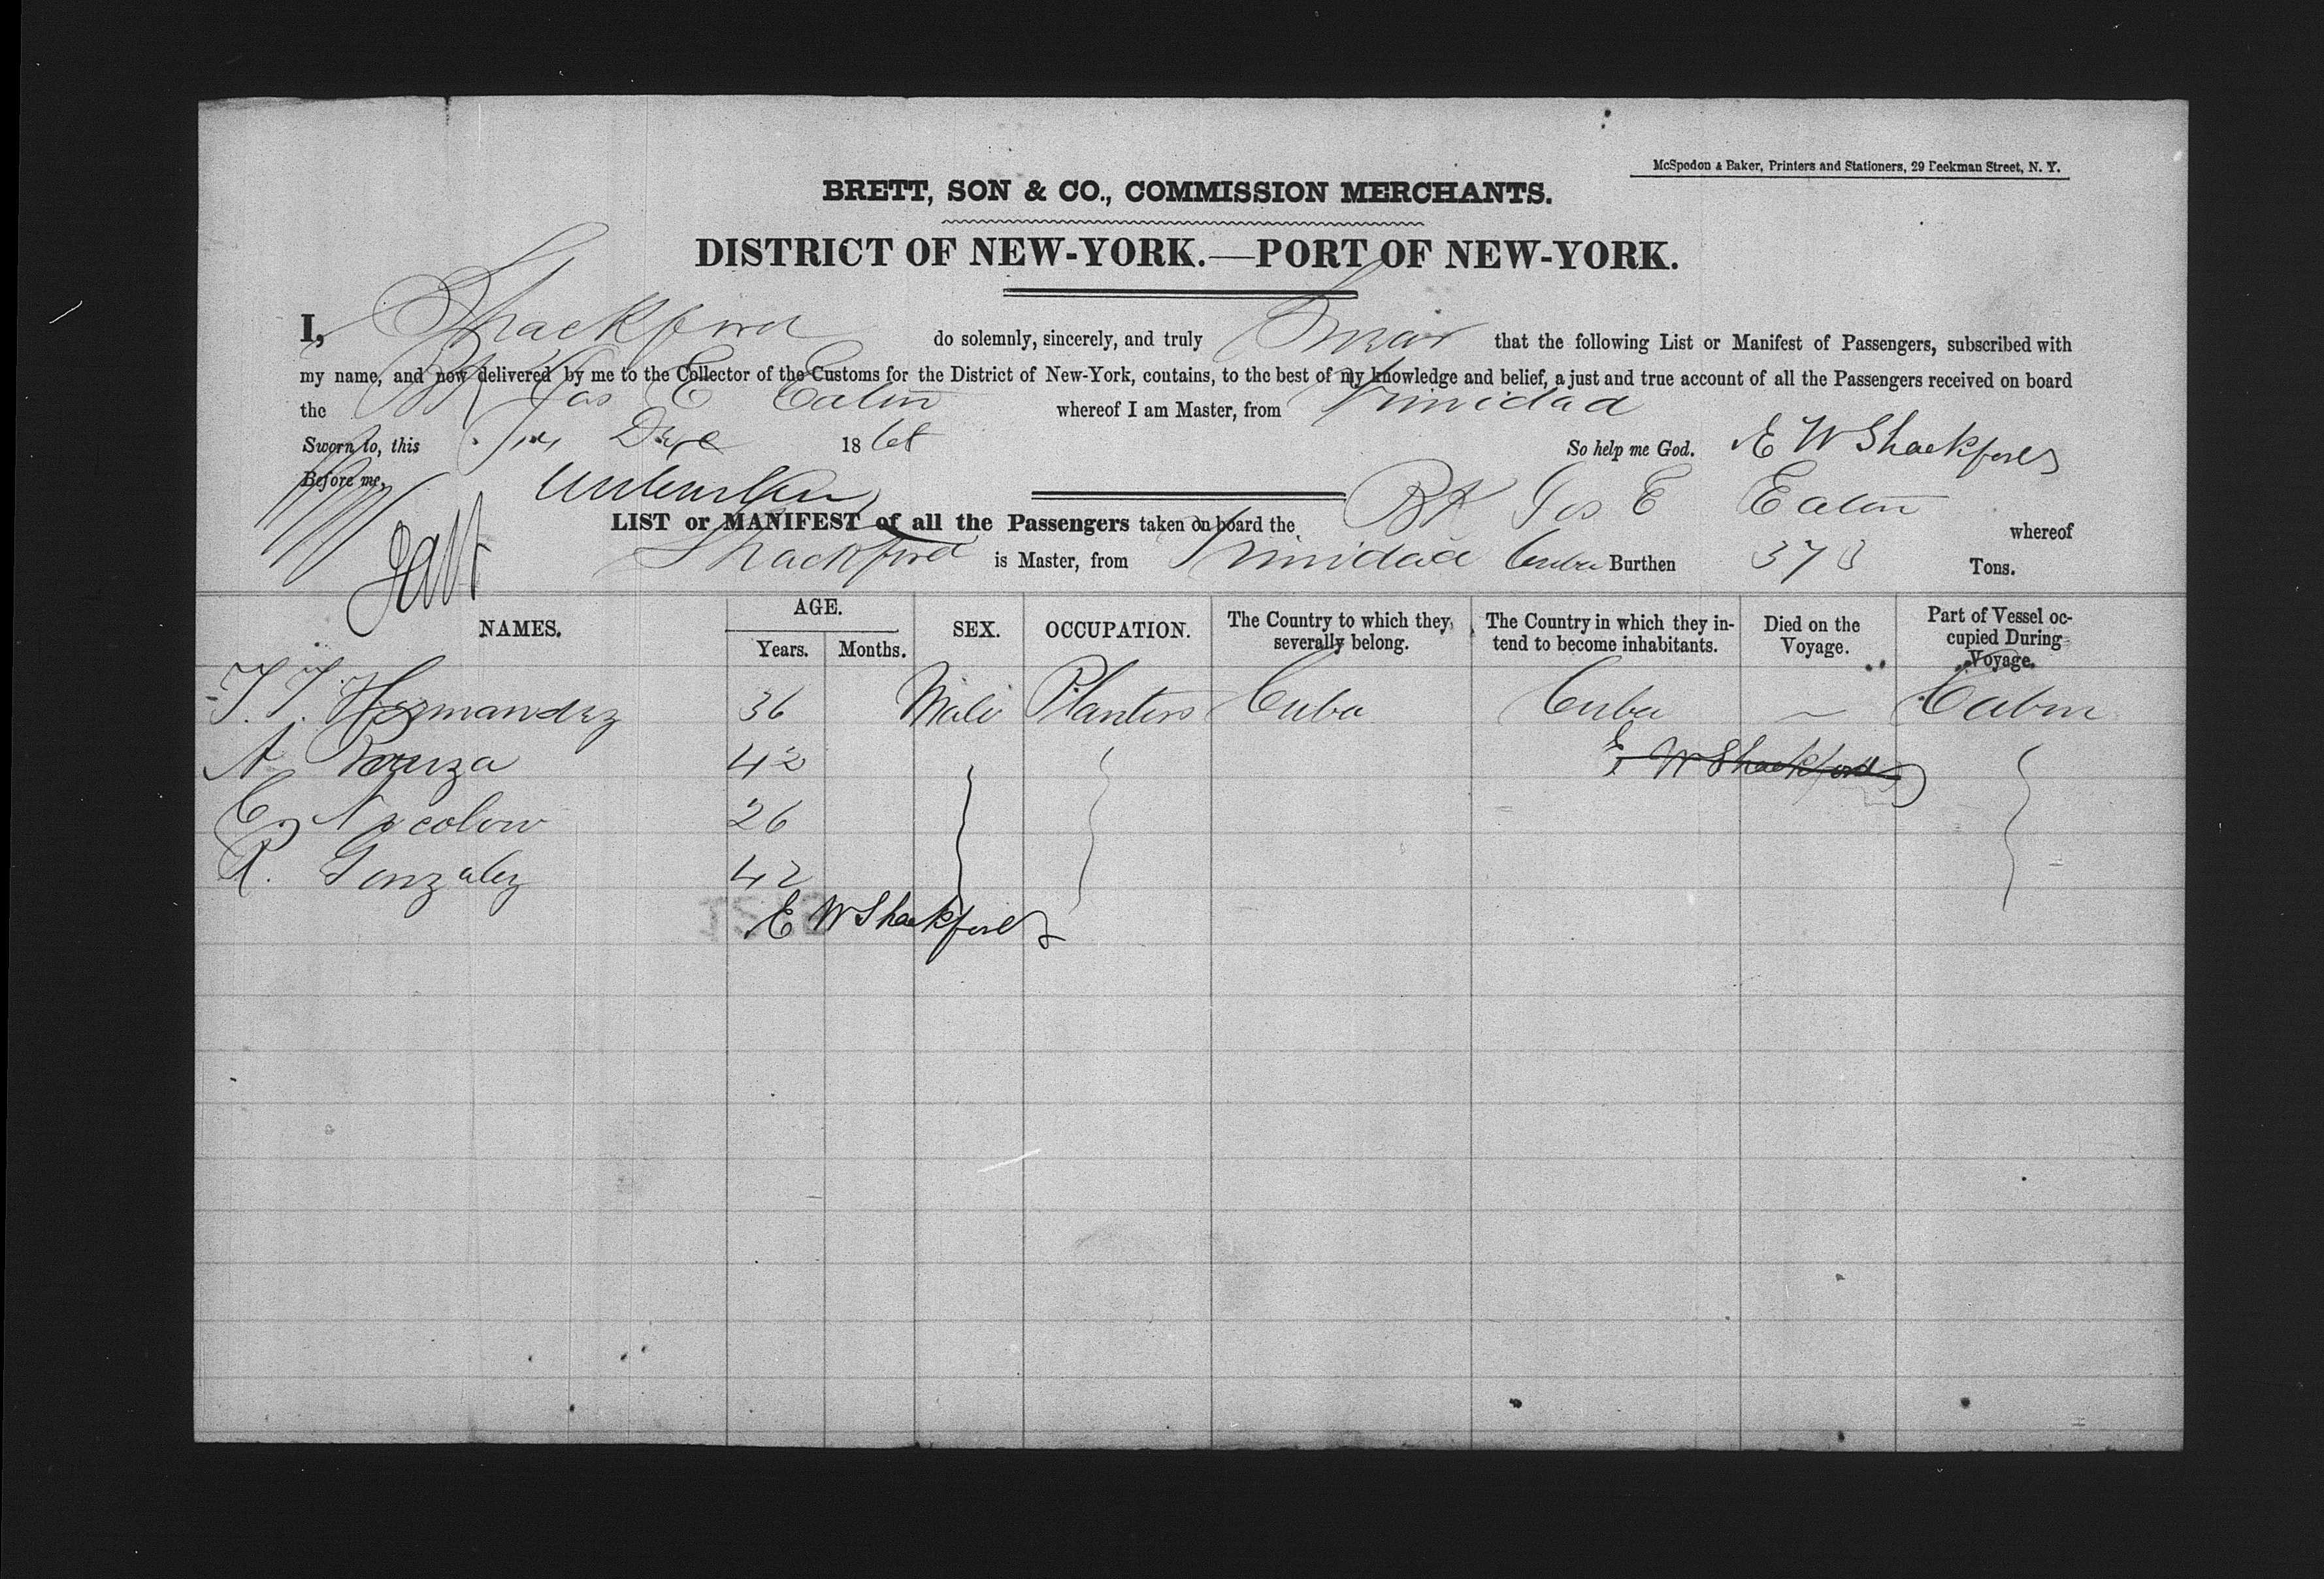 McSpedon & Baker, Printers and Stationers, 29 Beekman Street, N. Y.
BRETT, SON & CO., COMMISSION MERCHANTS.
DISTRICT OF NEW-YORK.—PORT OF NEW-YORK.
I, Shackford do solemnly, sincerely, and truly Swear that the following List or Manifest of Passengers, subscribed with
my name, and now delivered by me to the Collector of the Customs for the District of New-York, contains, to the best of my knowledge and belief, a just and true account of all the Passengers received on board
the Bk Jas E Eaton whereof I am Master, from Trinidad
Sworn to, this 1868 So help me God. E W Shackford
Before me,
LIST or MANIFEST of all the Passengers taken on board the Bk Jas E Eaton whereof
Shackford is Master, from Trinidad Cuba Burthen 373 Tons.
NAMES. AGE. Years. Months. SEX. OCCUPATION. The Country to which they severally belong. The Country in which they intend to become inhabitants. Died on the Voyage. Part of Vessel occupied During Voyage.
Hernandez 36 Male Planters Cuba Cuba — Cabin
A 42 E W Shackford
26
R. Gonzalez 42
E W Shackford